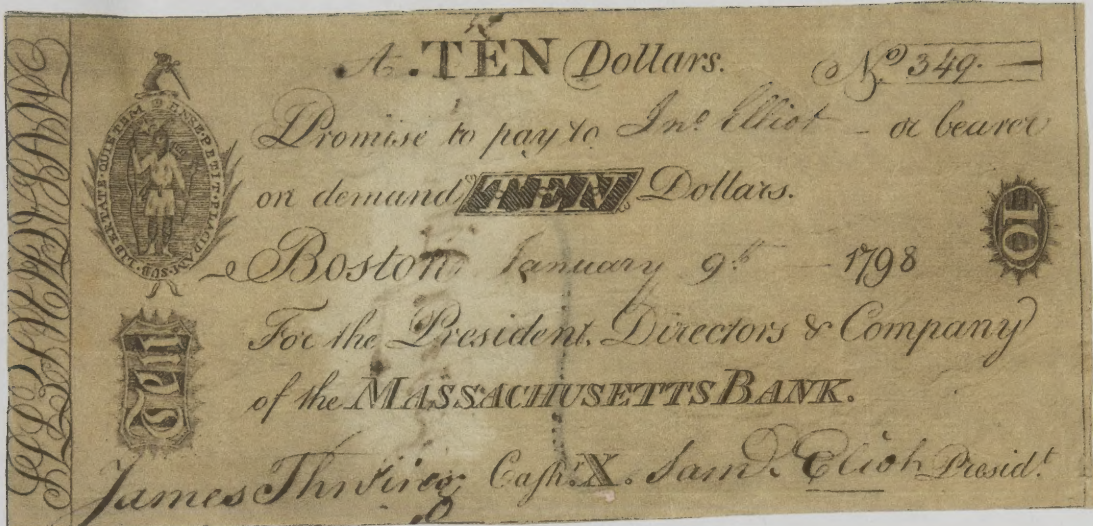 A. TEN Dollars. No. 349.
Promise to pay to Jno. Elliot or bearer
on demand TEN Dollars.
Boston January 9th 1798
For the President, Directors & Company
of the MASSACHUSETTS BANK.
James Thwing Cashr. X. Saml. Eliot Presidt.
ENSE·PETIT·PLACIDAM·SUB·LIBERTATE·QUIETEM
Ten
10